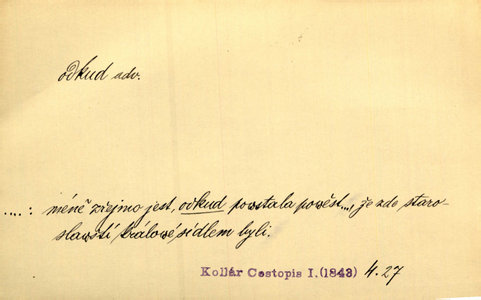 odkud adv.
....: méně zřejmo jest, odkud powstala powěst..., že zde staro-
slawští králowé sídlem byli.
Kollár Cestopis I.(1843) 4.27